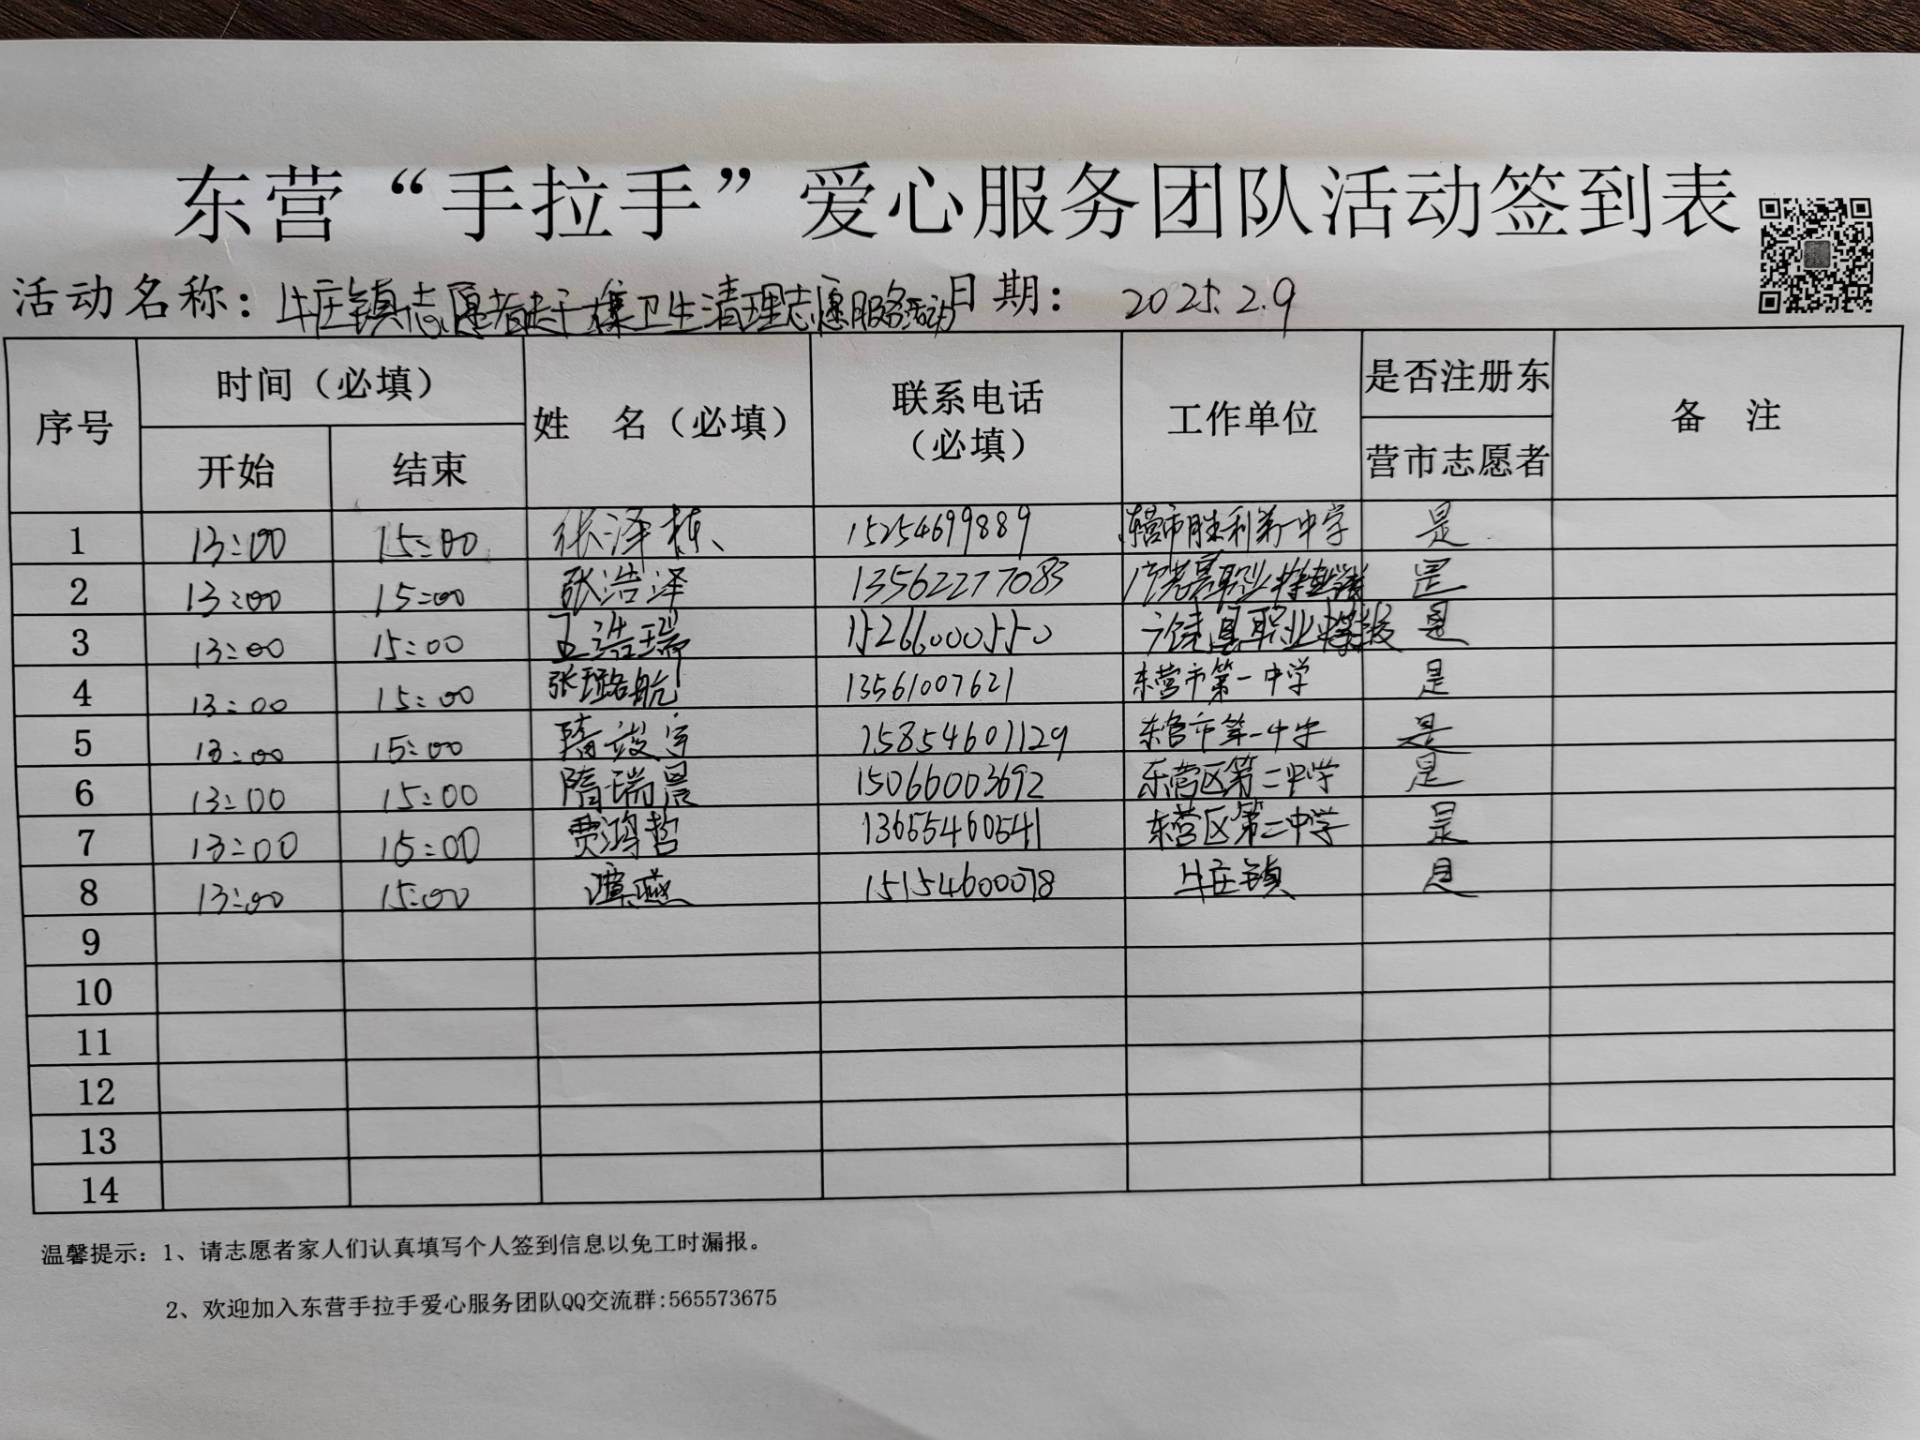 东营“手拉手”爱心服务团队活动签到表
活动名称：牛庄镇志愿者赶大集卫生清理志愿服务活动 日期： 2025.2.9
序号 时间（必填） 姓 名（必填） 联系电话（必填） 工作单位 是否注册东营市志愿者 备 注
开始 结束
1 13:00 15:00 张泽栋 15254699889 东营市胜利第一中学 是
2 13:00 15:00 张浩泽 13562277083 是
3 13:00 15:00 王浩瑞 15266000550 广饶县职业中等学校 是
4 13:00 15:00 张璐航 13561007621 东营市第一中学 是
5 13:00 15:00 隋竣宇 15854601129 东营市第一中学 是
6 13:00 15:00 隋瑞晨 15066003692 东营区第二中学 是
7 13:00 15:00 贾鸿哲 13655460541 东营区第二中学 是
8 13:00 15:00 燕 15154600078 牛庄镇 是
9
10
11
12
13
14
温馨提示：1、请志愿者家人们认真填写个人签到信息以免工时漏报。
2、欢迎加入东营手拉手爱心服务团队QQ交流群:565573675